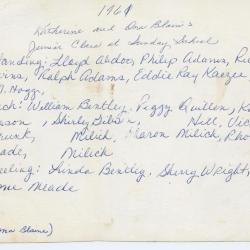 1961
Katherine and Ana Blaine's
Junior Class at Sunday School
anding: Lloyd Abdoo, Philip Adams, Ri
vins, Ralph Adams, Eddie Ray Kaezee
M. Hogg.
ack: William Bentley, Peggy Quillen, Ka
nson, Shirley Gibson, Hill, Vic
runk, Milich, Sharon Milich, Rho
eade, Milich
eeling: Linda Bentley, Sherry Wright,
one Meade
na Blaine)